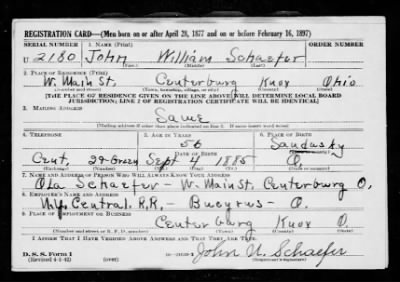 REGISTRATION CARD—(Men born on or after April 28, 1877 and on or before February 16, 1897)
SERIAL NUMBER 1. NAME (Print) ORDER NUMBER
U 2180 John William Schaefer
(First) (Middle) (Last)
2. PLACE OF RESIDENCE (Print)
W. Main St. Centerburg Knox Ohio
(Number and street) (Town, township, village, or city) (County) (State)
[THE PLACE OF RESIDENCE GIVEN ON THE LINE ABOVE WILL DETERMINE LOCAL BOARD
JURISDICTION; LINE 2 OF REGISTRATION CERTIFICATE WILL BE IDENTICAL]
3. MAILING ADDRESS
Same
[Mailing address if other than place indicated on line 2. If same insert word same]
4. TELEPHONE 5. AGE IN YEARS 6. PLACE OF BIRTH
56 Sandusky
DATE OF BIRTH
Cent, Sept 4 1885 O.
7. NAME AND ADDRESS OF PERSON WHO WILL ALWAYS KNOW YOUR ADDRESS
Ola Schaefer - W. Main St. Centerburg O.
8. EMPLOYER'S NAME AND ADDRESS
N.Y. Central. R.R. - Bucyrus - O.
9. PLACE OF EMPLOYMENT OR BUSINESS
Centerburg Knox O.
(Number and street or R. F. D. number) (Town) (County) (State)
I AFFIRM THAT I HAVE VERIFIED ABOVE ANSWERS AND THAT THEY ARE TRUE.
D. S. S. Form 1
(Revised 4-1-42) (over) John W Schaefer
(Registrant's signature)